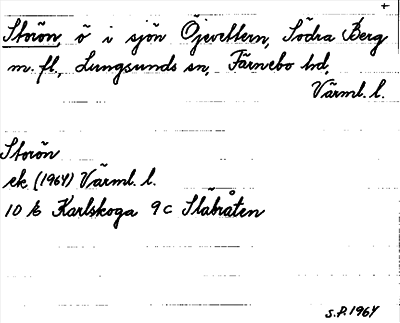 Storön, ö i sjön Öjevettern, Södra Berg
m. fl., Lungsunds sn, Färnebo hd,
Värml. l.
Storön
ek (1964) Värml. l.
10 E Karlskoga 9 c Slåbråten
S.P. 1964